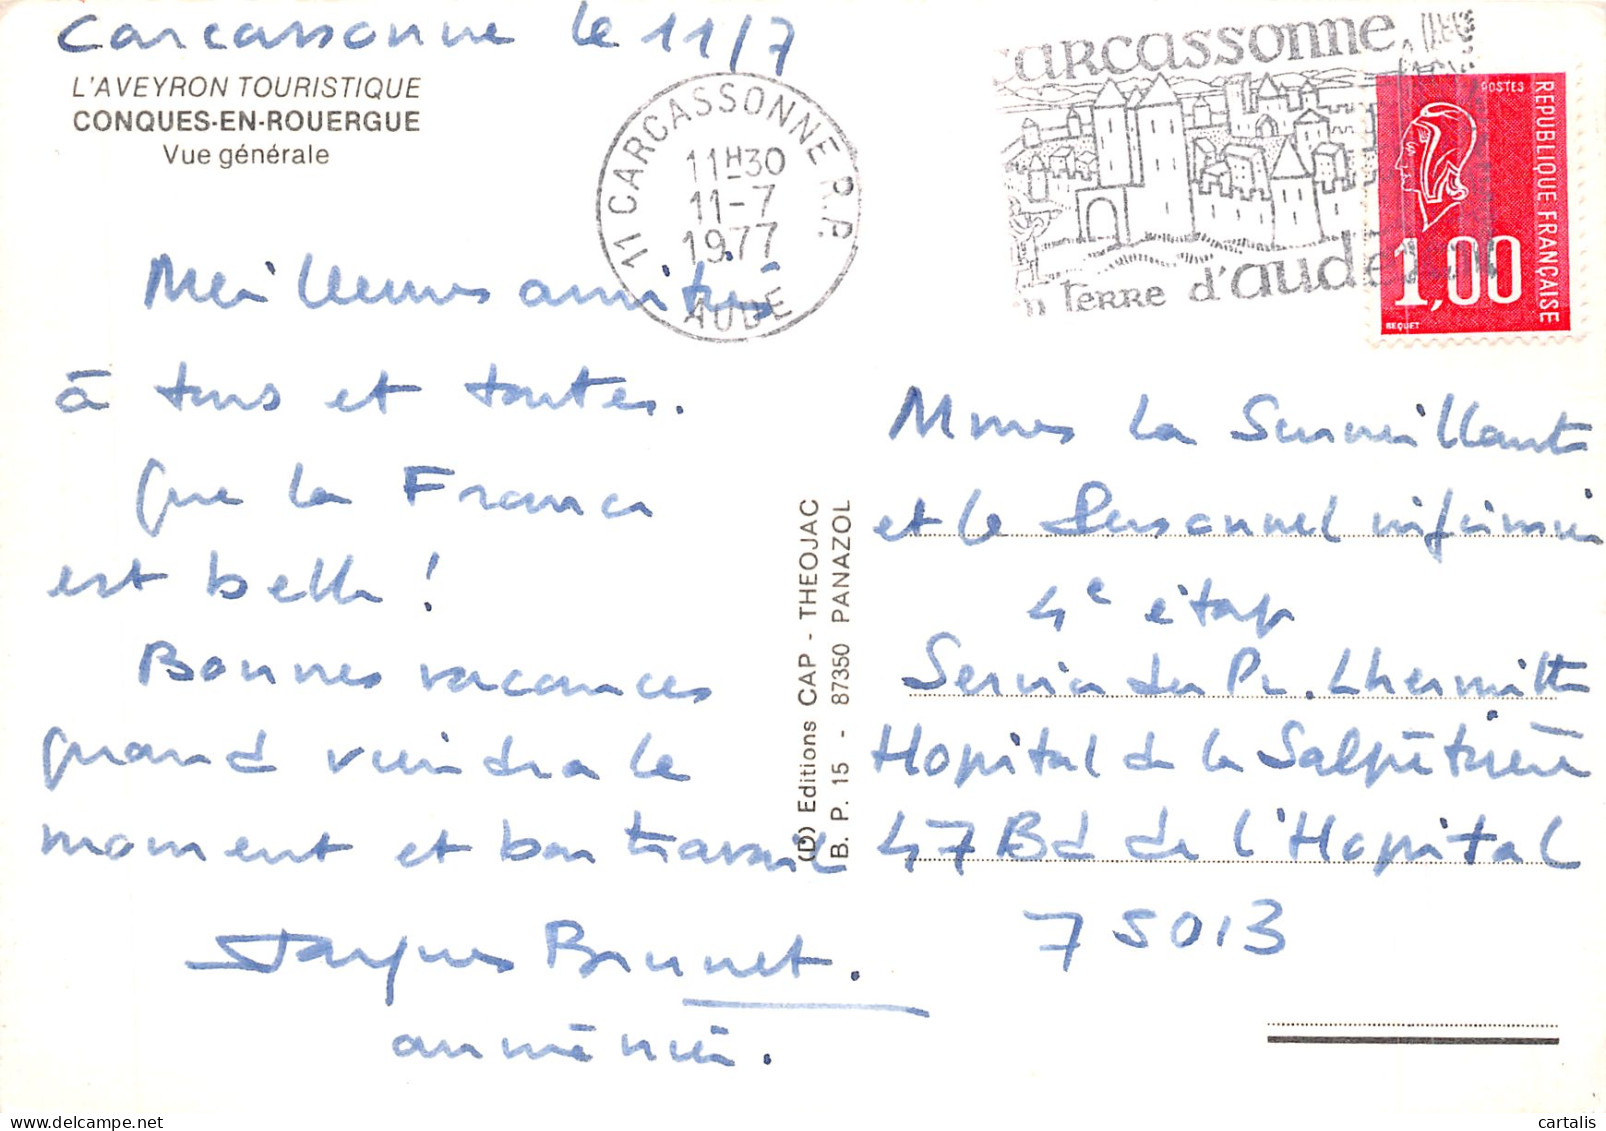 Carcassonne le 11/7
L'AVEYRON TOURISTIQUE
CONQUES-EN-ROUERGUE
Vue générale
11 CARCASSONNE R.P.
11H30
11-7
1977
AUDE
CARCASSONNE
en TERRE d'AUDE
POSTES
REPUBLIQUE FRANÇAISE
1,00
BEQUET
Meilleures amitiés
à tous et toutes.
Que la France
est belle !
Bonnes vacances
quand viendra le
moment et bon travail
Jacques Brunet.
(D) Editions CAP - THEOJAC
B. P. 15 - 87350 PANAZOL
Mmes La Surveillante
et le Personnel infirmier
4e étage
Service du Pr. Lhermitte
Hopital de la Salpêtrière
47 Bd de l'Hopital
75013
cartalis